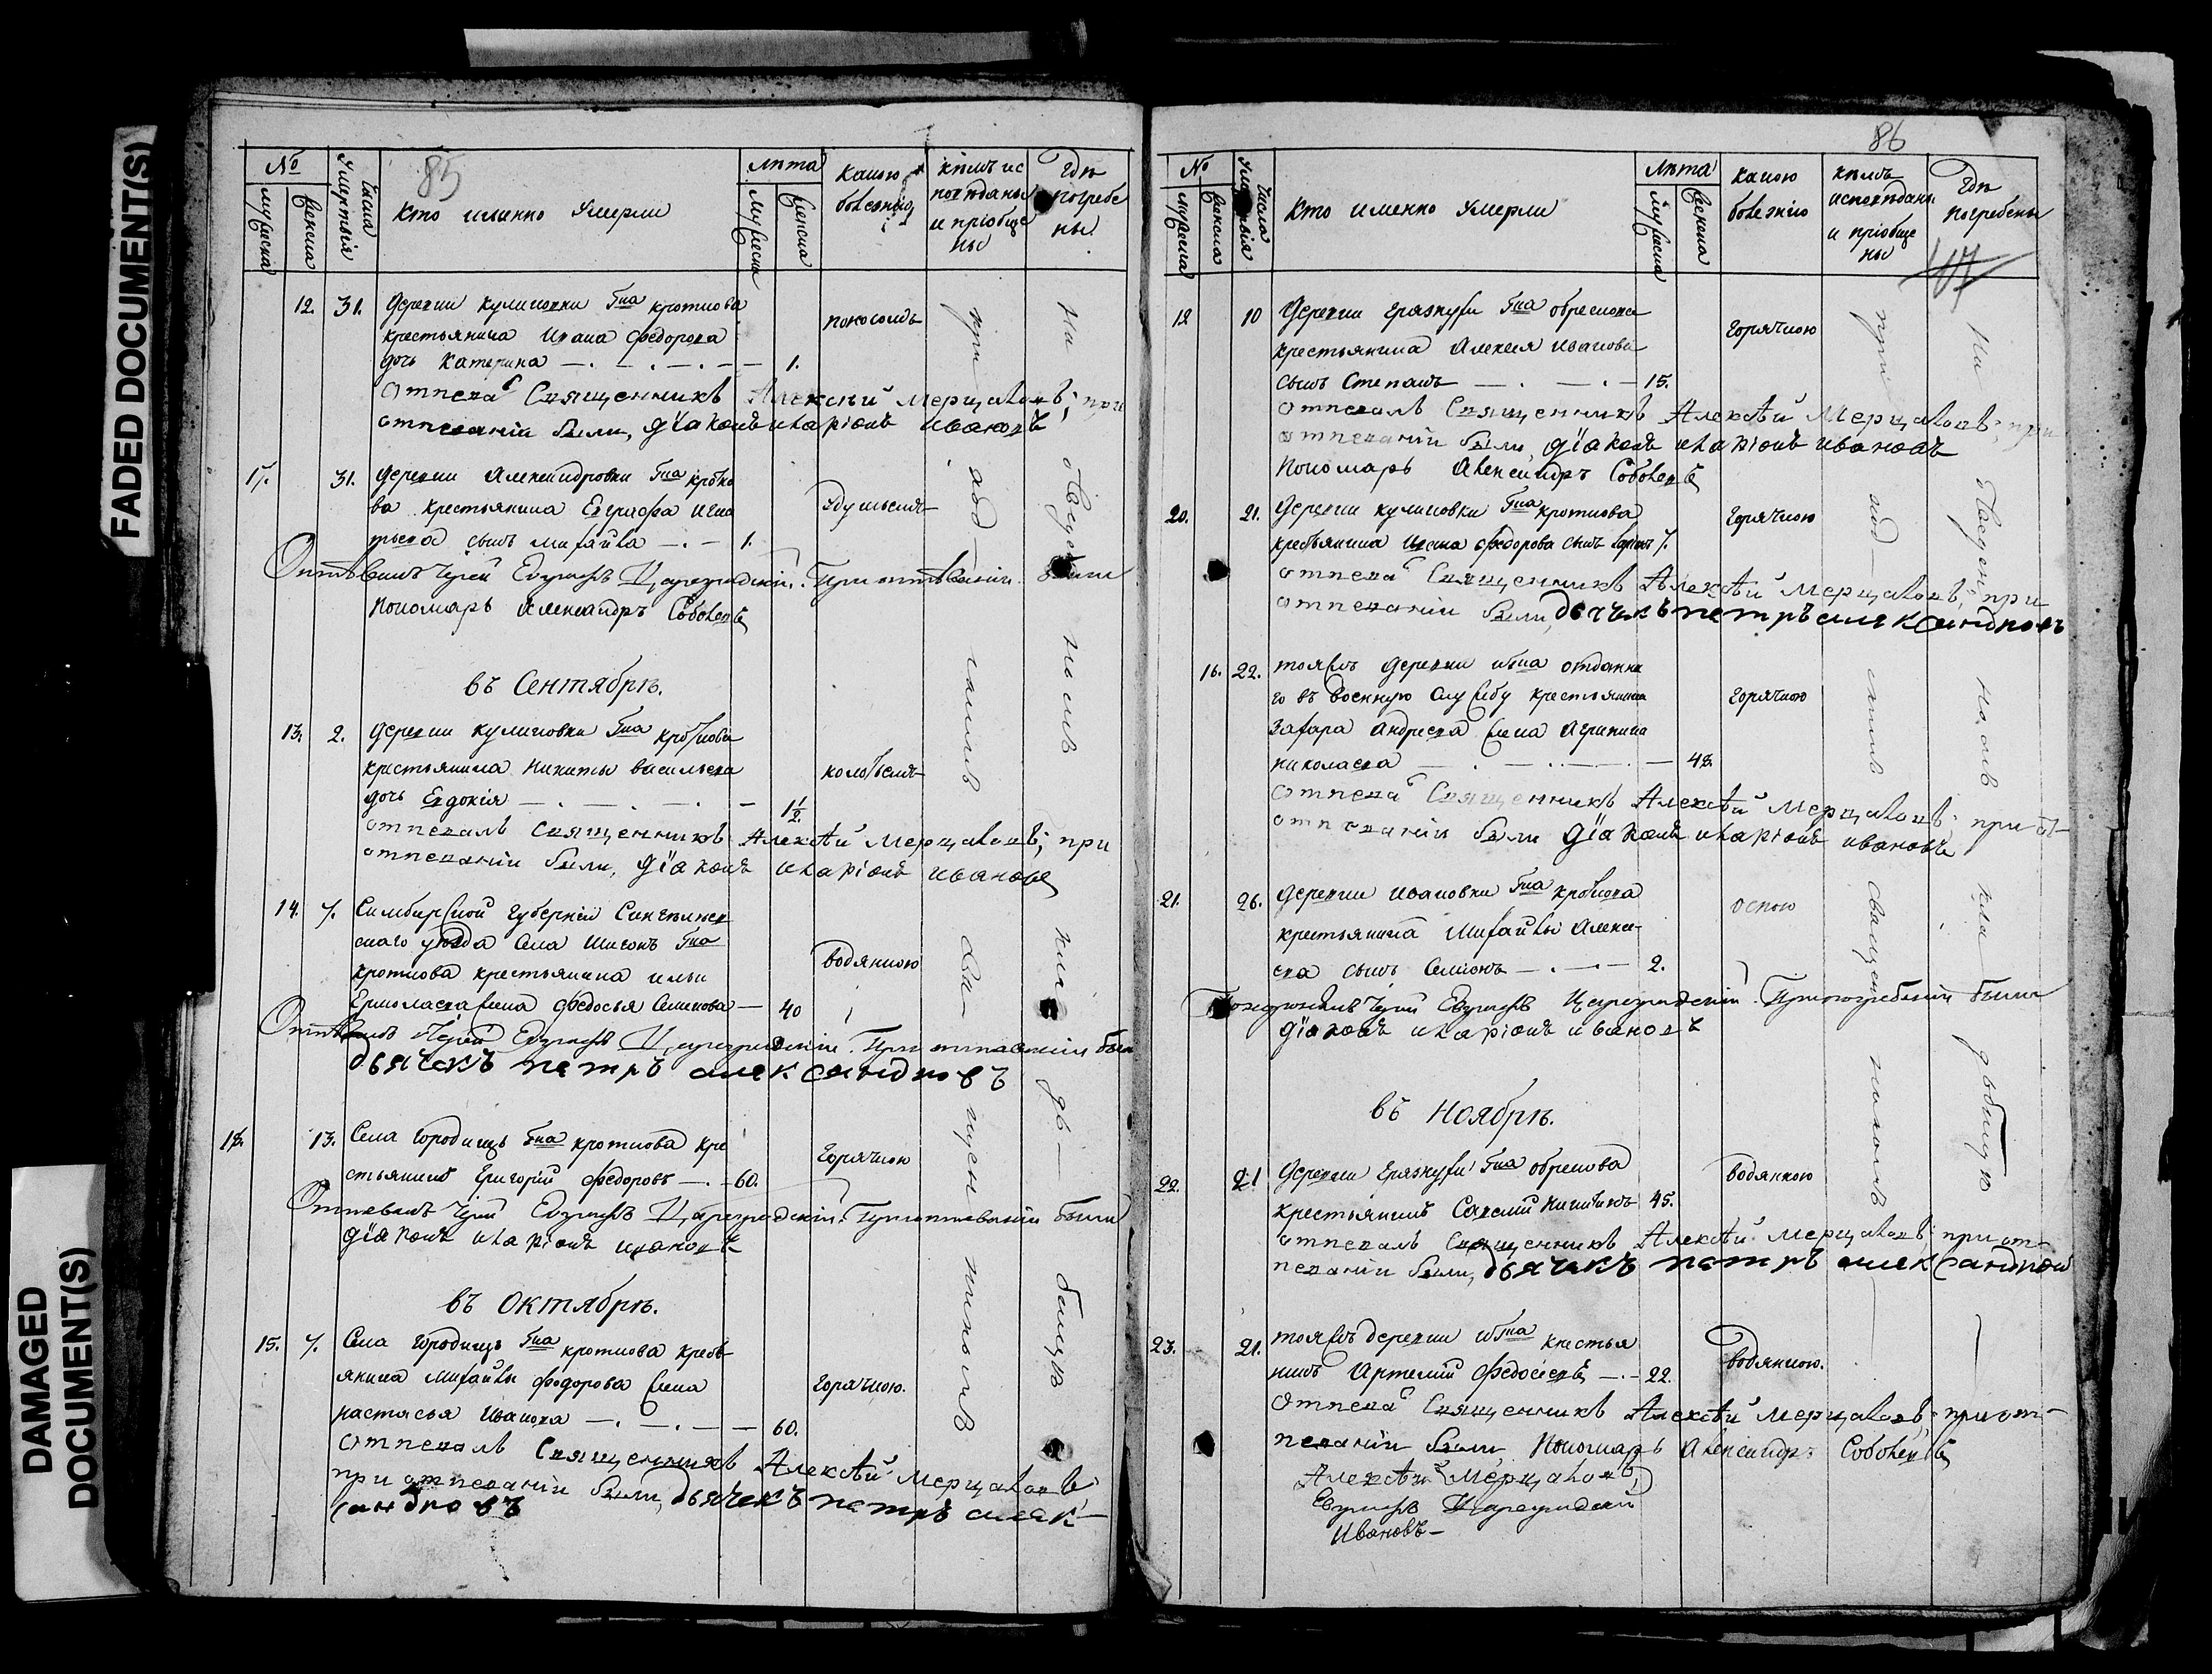 FADED DOCUMENT(S)
DAMAGED
DOCUMENT(S)
85
№
мужеска
женска
Числа
умертвія
Кто именно умерли
лѣта
мужеска
женска
какою
болезнію
кѣмъ ис
повѣданы
и пріобще
ны
Где
погребе
ны
12. 31. деревни Куликовки Гна Кроткова
крестьянина Ивана Федорова
дочь Катерина 1.
поносомъ
отпевалъ Священникъ Алексѣй Мерцаловъ; при
отпеваніи были, діаконъ иларіонъ ивановъ
17. 31. деревни Александровки Гна Кротко
ва крестьянина Евграфа Игна
тьева сынъ Михайла 1.
удушьемъ
Отпѣвалъ Іерей Евграфъ Цареградскій. При отпѣваніи были
Пономарь Александръ Соболевъ
въ Сентябрѣ.
13. 2. деревни Куликовки Гна Кроткова
крестьянина Никиты Васильева
дочь Евдокія 1 1/2.
колотьемъ
отпевалъ Священникъ Алексѣй Мерцаловъ; при
отпеваніи были, діаконъ иларіонъ ивановъ
14. 7. Симбирской губерніи Сингилеев
скаго уѣзда села Шигонъ Гна
Кроткова крестьянина Ильи
Ермолаева жена Федосья Семенова 40
водянкою
Отпѣвалъ Іерей Евграфъ Цареградскій. При отпѣваніи были
дьячекъ петръ александровъ
18. 13. Села Городищъ Гна Кроткова кре
стьянинъ Григорій Федоровъ 60.
горячкою
Отпевалъ Іерей Евграфъ Цареградскій. При отпеваніи были
діаконъ иларіонъ ивановъ
въ Октябрѣ.
15. 7. Села Городищъ Гна Кроткова кресть
янина Михайлы Федорова жена
Настасья Иванова 60.
горячкою.
отпевалъ Священникъ Алексѣй Мерцаловъ
при отпеваніи были, дьячекъ петръ алек
сандровъ
на отведенномъ
кладбищѣ
86
№
мужеска
женска
Числа
умертвія
Кто именно умерли
лѣта
мужеска
женска
какою
болезнію
кѣмъ
исповѣданы
и пріобще
ны
Где
погребены
19 10 деревни Грязнухи Гна Обрескова
крестьянина Алексея Иванова
сынъ Степанъ 15.
горячкою
отпевалъ Священникъ Алексѣй Мерцаловъ; при
отпеваніи были, діаконъ иларіонъ ивановъ
Пономарь Александръ Соболевъ
20. 21. деревни Куликовки Гна Кроткова
крестьянина Ивана Федорова сынъ 7.
горячкою
отпевалъ Священникъ Алексѣй Мерцаловъ, при
отпеваніи были, дьячекъ петръ александровъ
16. 22. тояжъ деревни Гна отданна
го въ военную службу крестьянина
Захара Андреева жена Агрипина
Николаева 48.
горячкою
отпевалъ Священникъ Алексѣй Мерцаловъ; при от-
отпеваніи были діаконъ иларіонъ ивановъ
21. 26. деревни Ивановки Гна Кроткова
крестьянина Михайлы Алексе-
ева сынъ Семионъ 2.
оспою
Похоронилъ Іерей Евграфъ Цареградскій. При погребеніи были
діаконъ иларіонъ ивановъ
въ Ноябрѣ.
22. 21 деревни Грязнухи Гна Обрескова
крестьянинъ Савелій Никитинъ 45.
водянкою
отпевалъ Священникъ Алексѣй Мерцаловъ; при от-
певаніи были, дьячекъ петръ александровъ
23. 21. тояжъ деревни Гна крестья
нинъ Артемій Федосеевъ 22.
водянкою.
отпевалъ Священникъ Алексѣй Мерцаловъ; при от-
певаніи были Пономарь Александръ Соболевъ
Алексѣй Мерцаловъ
Евграфъ Цареградскій
Ивановъ
приходскимъ священникомъ
на отведенномъ
для кладбищѣ